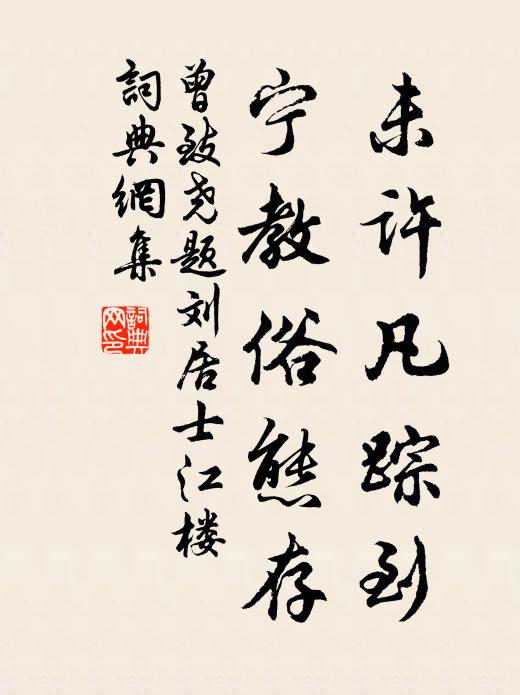 未许凡踪到
宁教俗熊存
曾致尧题刘居士江楼
詞典網集
詞典网印